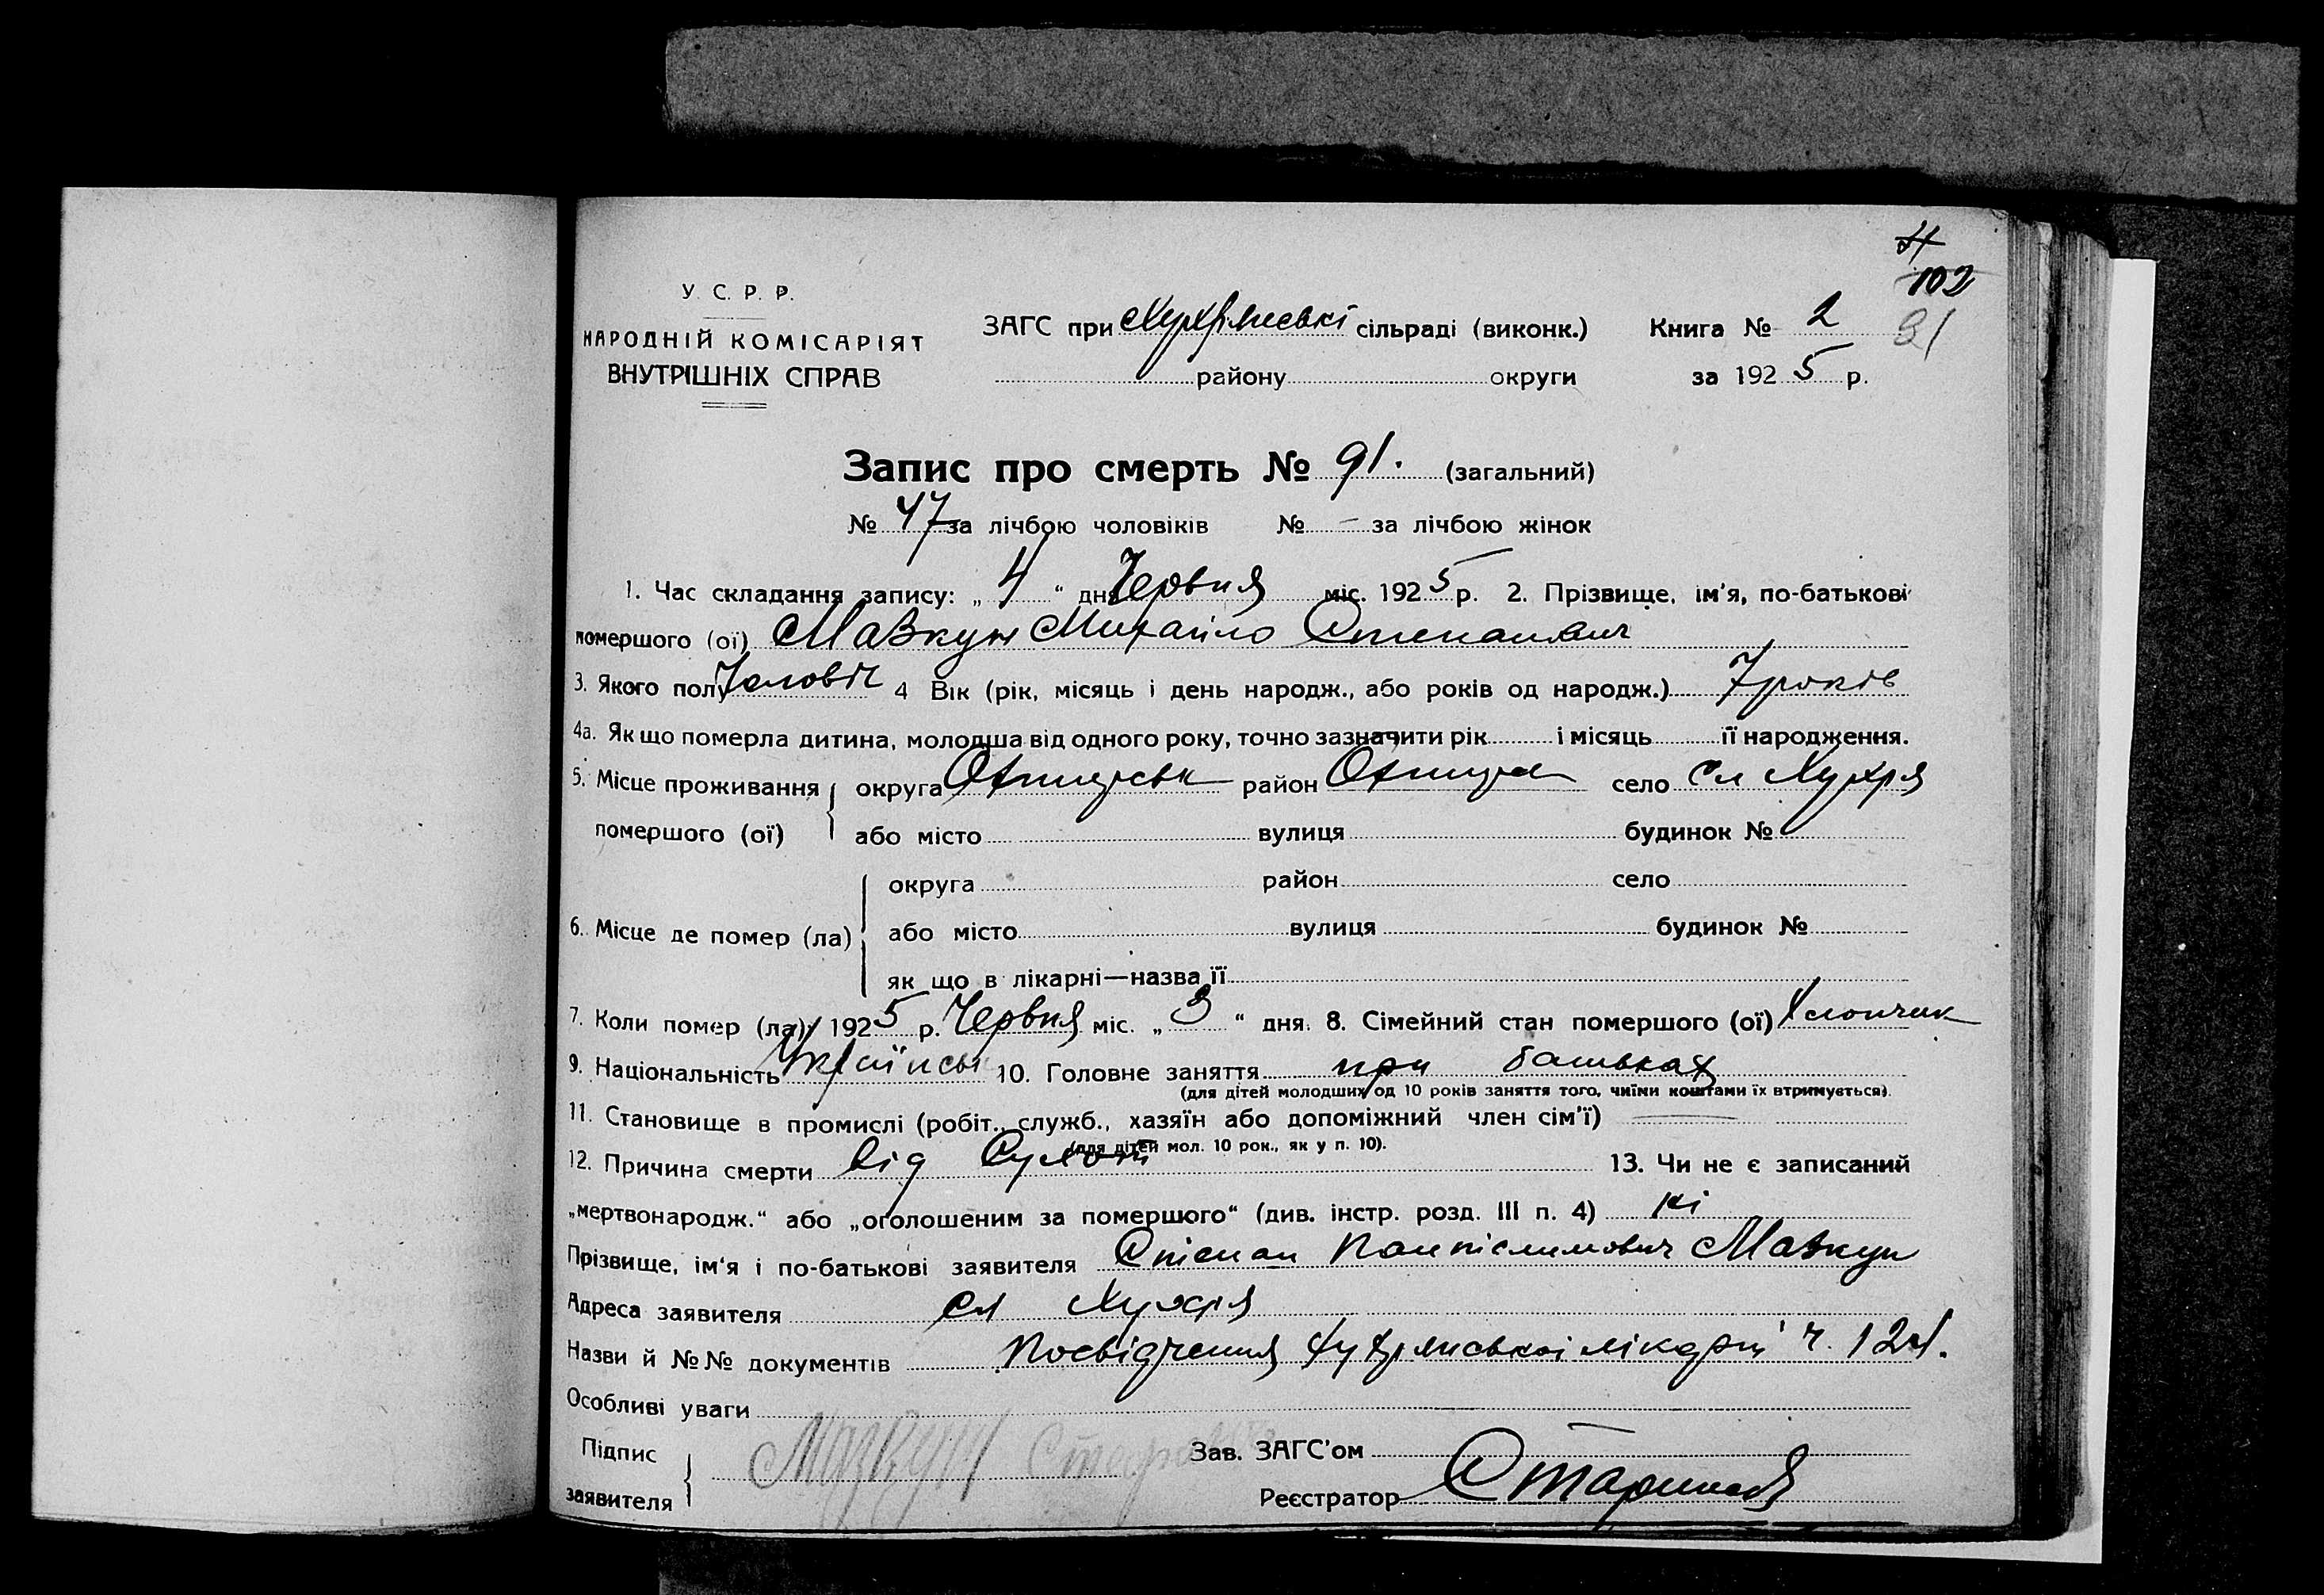 102
91
У. С. Р. Р.
НАРОДНІЙ КОМІСАРІЯТ
ВНУТРІШНІХ СПРАВ
ЗАГС при Хухрянські сільраді (виконк.) Книга № 2
району округи за 1925 р.
Запис про смерть № 91. (загальний)
№ 47 за лічбою чоловіків № — за лічбою жінок
1. Час складання запису: „4“ дня Червня міс. 1925 р. 2. Прізвище, ім'я, по-батькові
помершого (ої) Мазкун Михайло Степанович
3. Якого полу Чоловіч 4 Вік (рік, місяць і день народж., або років од народж.) 7 років
4а. Як що померла дитина, молодша від одного року, точно зазначити рік і місяць її народження.
5. Місце проживання округа Охтирськ район Охтирск село Сл Хухря
помершого (ої) або місто вулиця будинок №
округа район село
6. Місце де помер (ла) або місто вулиця будинок №
як що в лікарні—назва її
7. Коли помер (ла) 1925 р. Червня міс. „3“ дня. 8. Сімейний стан помершого (ої) Хлопчик
9. Національність Українськ 10. Головне заняття при батьках
(для дітей молодших од 10 років заняття того, чиїми коштами їх втримується).
11. Становище в промислі (робіт., служб., хазяїн або допоміжний член сім'ї) —
(для дітей мол. 10 рок., як у п. 10).
12. Причина смерти від Сухот 13. Чи не є записаний
„мертвонародж.“ або „оголошеним за помершого“ (див. інстр. розд. III п. 4) ні
Прізвище, ім'я і по-батькові заявителя Степан Мазкун
Адреса заявителя сл Хухря
Назви й №№ документів Посвідчення Хухрянської лікарні ч. 124.
Особливі уваги
Підпис
заявителя Мазкун
Зав. ЗАГС'ом
Реєстратор